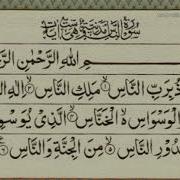 سُوْرَةُ النَّاسِ مَدَنِيَّةٌ وَّهِيَ سِتُّ اٰيَاتٍ
ـسْمِ اللهِ الرَّحْمٰنِ الرَّ
ذُ بِرَبِّ النَّاسِ ۙ مَلِكِ النَّاسِ ۙ اِلٰهِ ال
الْوَسْوَاسِ ۙ الْخَنَّاسِ ۙ الَّذِيْ يُوَسْوِ
دُوْرِ النَّاسِ ۙ مِنَ الْجِنَّةِ وَالنَّاسِ